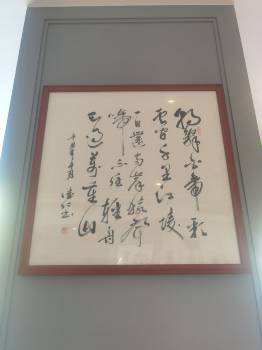 朝辭白帝彩
雲間千里江陵
一日還兩岸猿聲
啼不住輕舟
已過萬重山